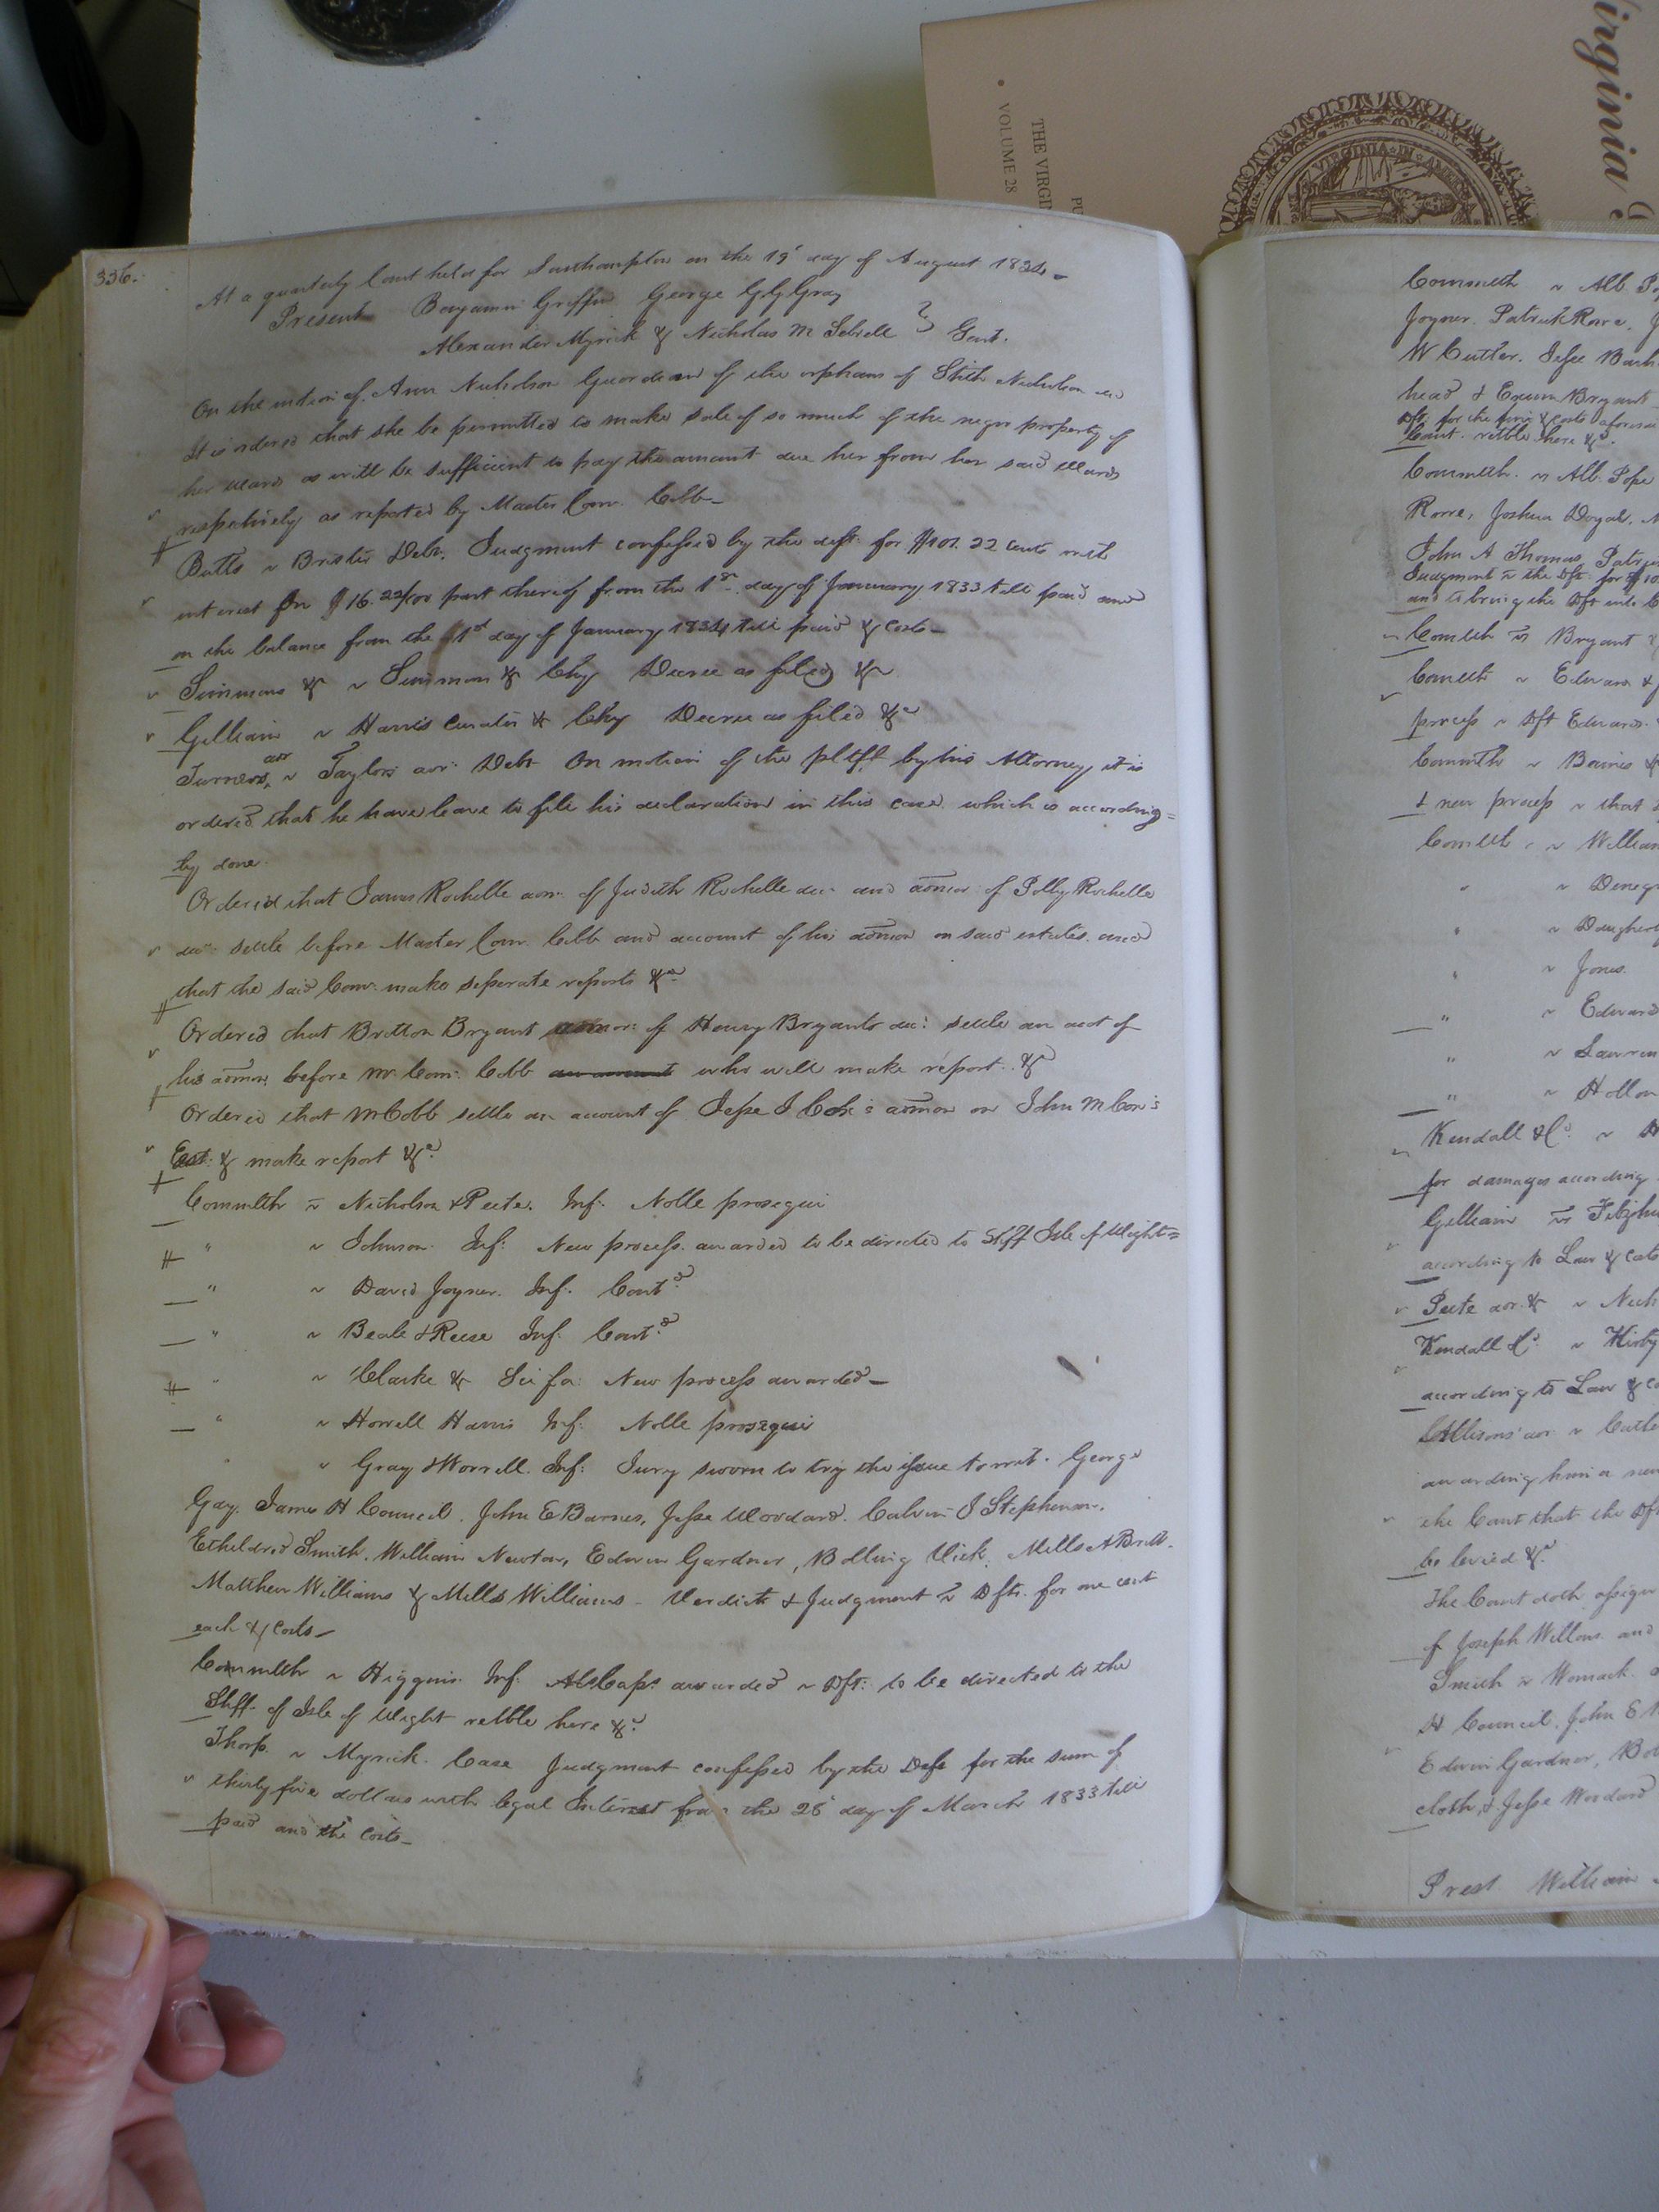 Virginia
THE VIRGI
VOLUME 28
PU
VIRGINIA IN
336.
At a quarterly Court held for Southampton on the 19 day of August 1834
Present Benjamin Griffin George G G Gray
Alexander Myrick & Nicholas M Sebrell } Gent.
On the motion of Ann Nicholson Guardian of the orphans of Stith Nicholson
It is ordered that she be permitted to make sale of so much of the negro property of
her wards as will be sufficient to pay the amount due her from her said wards
respectively as reported by Master Com. Cobb
Butts v Brister Debt. Judgment confessed by the deft. for $101. 22 cents with
interest on $16.22/100 part thereof from the 1st day of January 1833 till paid and
on the balance from the 1st day of January 1834 till paid & costs
Simmons & v Simmons & Chy Decree as filed &c
Gilliam v Harris curator & Chy Decree as filed &c
Turners adr v Taylors adr Debt On motion of the pltff by his Attorney it is
ordered that he have leave to file his declaration in this case which is according=
ly done.
Ordered that James Rochelle adm. of Judith Rochelle dec and admor of Polly Rochelle
dec. settle before Master Com. Cobb and account of his admon on said estates and
that the said Com. make seperate reports &c
Ordered that Britton Bryant admor. of Henry Bryants dec. settle an acct of
his admon before M. Com. Cobb an account who will make report. &c
Ordered that M Cobb settle an account of Jesse J Cox's admon on John M Cox's
Est. & make report &c.
Commlth v Nicholson & Peete. Inf. Nolle prosequi
" v Johnson Inf: New process awarded to be directed to Shff Isle of Wight
" v David Joyner. Inf. Contd.
" v Beale & Reese Inf: Contd.
" v Clarke & Sci fa: New process awarded
" v Howell Harris Inf: Nolle prosequi
" v Gray & Worrell. Inf: Jury sworn to try the issue to wit. George
Gay. James H Council. John E Barnes, Jesse Woodard. Calvin J Stephenson.
Etheldred Smith. William Newton, Edwin Gardner, Bolling Vick. Mills A Britt.
Matthew Williams & Mills Williams - Verdict & Judgment v Dfts. for one cent
each & costs
Commlth v Higgins. Inf. Als Caps. awarded v Dft: to be directed to the
Shff. of Isle of Wight retble here &c.
Thorp. v Myrick. Case Judgment confessed by the Deft for the sum of
thirty five dollars with legal Interest from the 28 day of March 1833 till
paid and the costs
Commlth v Alb Po
Joyner. Patrick Rowe, J
W Cutler. Jesse Barh
head & Exum Bryant
Dft: for the fine & costs aforesai
Court. retble here &c.
Commlth. v Alb. Pope
Rowe, Joshua Doyal,
John A Thomas, Patri
Judgment v the Dft: for $10
and to bring the Dft into C
Comlth v Bryant
Comlth v Edward &
process v Dft Edward.
Commth v Barnes &
& new process v that
Comlth v William
" v
" v Daugher
" v Jones.
" v Edward
" v Lawren
" v Hollom
Kendall & Co. v
for damages according
Gilliam v Fitzhu
according to Law & costs
Peete adr. & v Nich
Kendall & Co. v Kirby
according to Law & co
v Cutle
awarding him a new
the Court that the Dft
be levied &c.
The Court doth assign
of Joseph Willons. and
Smith v Womack.
H Council. John E B
Edwin Gardner, Bol
cloth, & Jesse Woodard
Prest William